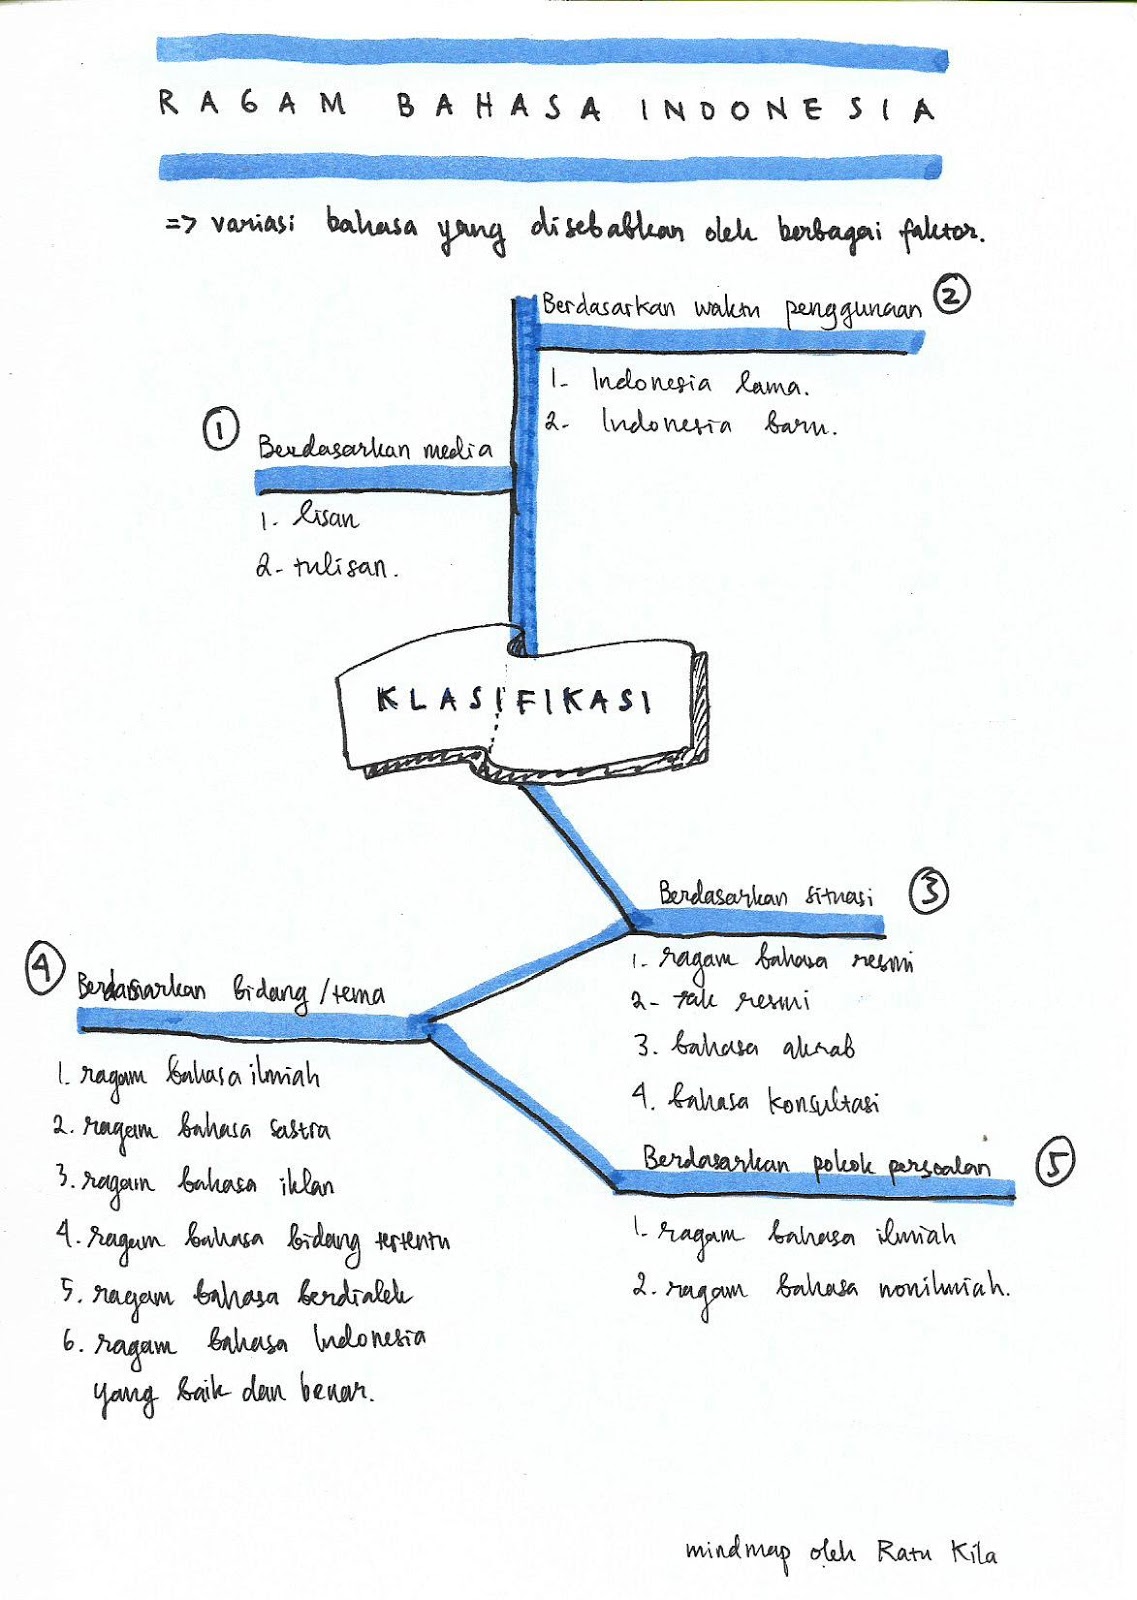 RAGAM BAHASA INDONESIA
=> variasi bahasa yang disebabkan oleh berbagai faktor.
② Berdasarkan waktu penggunaan
1- Indonesia lama.
2- Indonesia baru.
① Berdasarkan media
1- lisan
2- tulisan.
KLASIFIKASI
Berdasarkan situasi ③
1- ragam bahasa resmi
2- tak resmi
3. bahasa akrab
4. bahasa konsultasi
④ Berdasarkan bidang/tema
1. ragam bahasa ilmiah
2. ragam bahasa sastra
3. ragam bahasa iklan
4. ragam bahasa bidang tertentu
5. ragam bahasa berdialek
6. ragam bahasa Indonesia
yang baik dan benar.
Berdasarkan pokok persoalan ⑤
1- ragam bahasa ilmiah
2. ragam bahasa nonilmiah.
mindmap oleh Ratu Kila